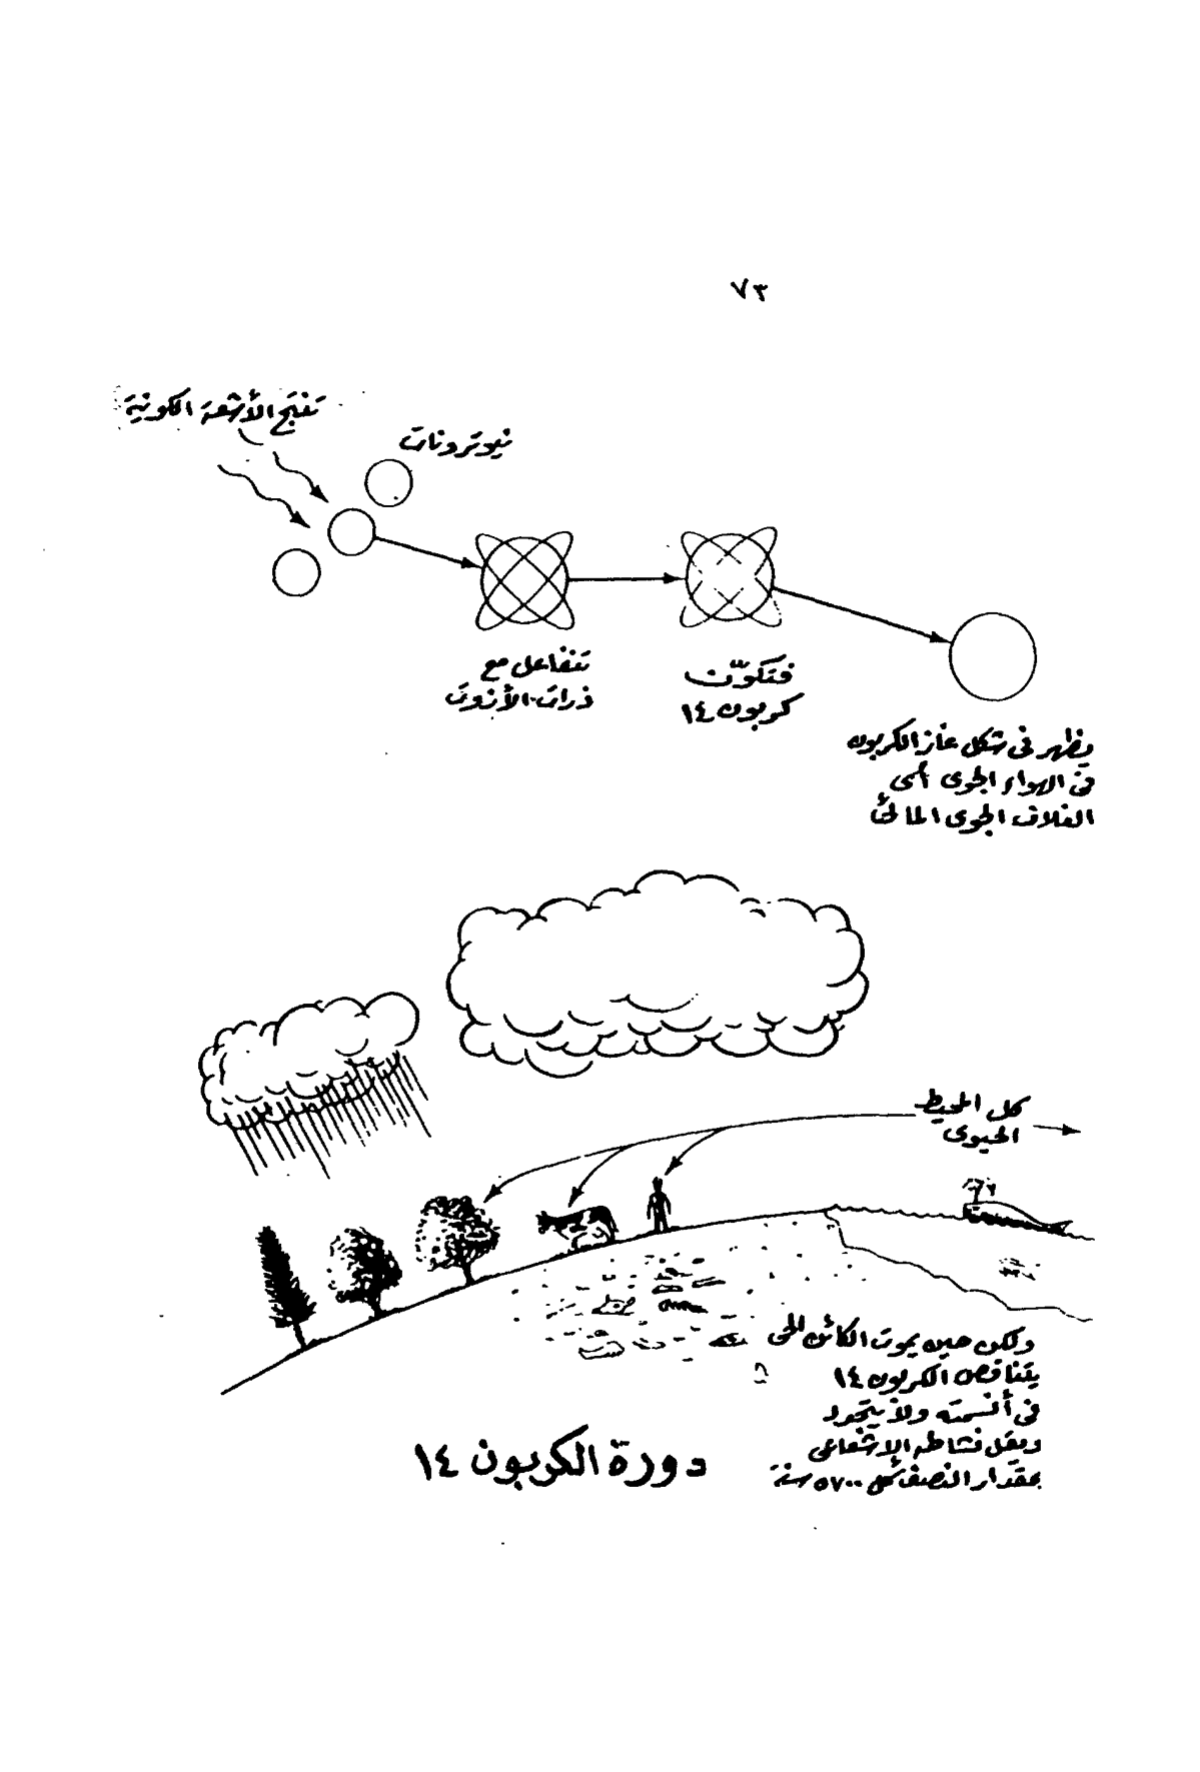 ٧٣
تنتج الأشعة الكونية
نيوترونات
تتفاعل مع
ذرات الأزوت
فتكوّن
كربون ١٤
يظهر فى شكل غاز الكربون
فى الهواء الجوى أى
الغلاف الجوى المائى
كل المحيط
الحيوى
ولكن حين يموت الكائن الحى
يتناقص الكربون ١٤
فى أنسجته ولا يتجدد
ويقل نشاطه الإشعاعى
بمقدار النصف كل ٥٧٠٠ سنة
دورة الكربون ١٤